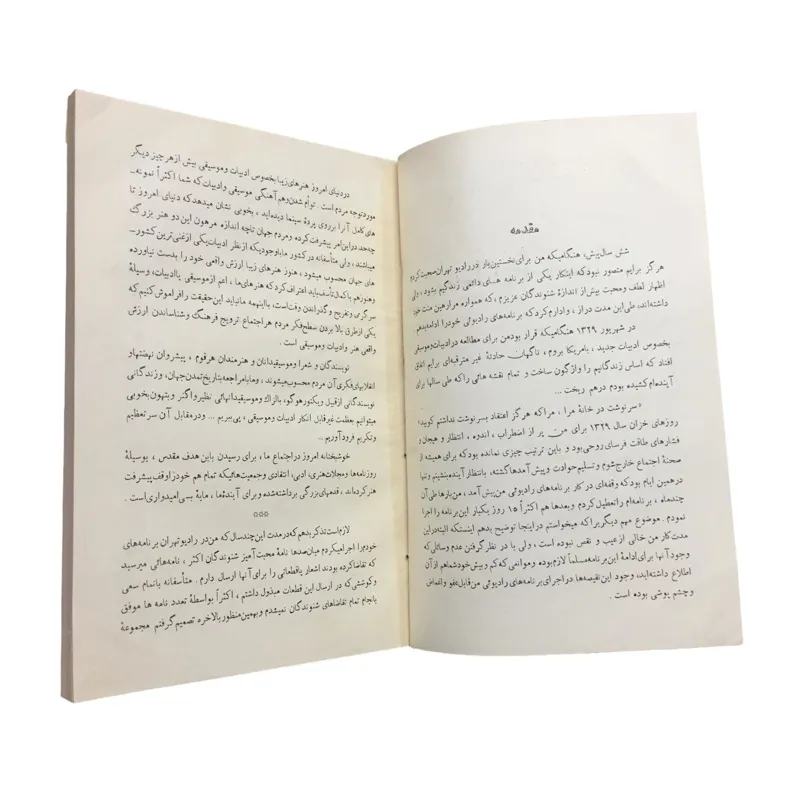 مقدمه
شش سال پیش، هنگامیکه من برای نخستین بار در رادیو تهران صحبت کردم
هرگز برایم متصور نبود که ابتکار یکی از برنامه های دائمی زندگیم بشود ، ولی
اظهار لطف و محبت بیش از اندازهٔ شنوندگان عزیزم ، که همواره مرا رهین منت خود
داشته‌اند، طی این مدت دراز ، وادارم کرد که برنامه‌های رادیوئی خود را ادامه بدهم .
در شهریور ۱۳۲۹ هنگامیکه قرار بود من برای مطالعه در ادبیات و موسیقی
بخصوص ادبیات جدید ، بامریکا بروم ، ناگهان حادثهٔ غیر مترقبه‌ای برایم اتفاق
افتاد که اساس زندگانیم را واژگون ساخت و تمام نقشه هائی را که طی سالها برای
آینده‌ام کشیده بودم درهم ریخت ...
«سرنوشت در خانهٔ مرا ، مرا که هرگز اعتقاد بسرنوشت نداشتم کوبید»
روزهای خزان سال ۱۳۲۹ برای من پر از اضطراب ، اندوه ، انتظار و هیجان و
فشارهای طاقت فرسای روحی بود و باین ترتیب چیزی نمانده بود که برای همیشه از
صحنهٔ اجتماع خارج شوم و تسلیم حوادث و پیش آمدها گشته، بانتظار آینده بنشینم و تنها
در همین ایام بود که وقفه‌ای در کار برنامه‌های رادیوئی من پیش آمد ، من بارها طی آن
چند ماه ، برنامه‌ام را تعطیل کردم و بعدها هم اکثراً ۱۵ روز یکبار این برنامه را اجرا
نمودم . موضوع مهم دیگری را که میخواستم در اینجا توضیح بدهم اینستکه البته در این
مدت کار من خالی از عیب و نقص نبوده است ، ولی با در نظر گرفتن عدم وسائلی که
وجود آنها برای ادامهٔ این برنامه مسلماً لازم بوده و موانعی که کم و بیش خود شما هم از آن
اطلاع داشته‌اید، وجود این نقیصه‌ها در اجرای برنامه‌های رادیوئی من قابل عفو و اغماض
و چشم پوشی بوده است .
در دنیای امروز هنرهای زیبا بخصوص ادبیات و موسیقی بیش از هر چیز دیگر
مورد توجه مردم است . توأم شدن و هم آهنگی موسیقی و ادبیات که شما اکثراً نمونه-
های کامل آنرا بر روی پردهٔ سینما دیده‌اید ، بخوبی نشان میدهد که دنیای امروز تا
چه حد در این امر پیشرفت کرده و مردم جهان تا چه اندازه مرهون این دو هنر بزرگ
میباشند ، ولی متأسفانه در کشور ما با وجود یکه از نظر ادبیات یکی از غنی‌ترین کشور-
های جهان محسوب میشود ، هنوز هنرهای زیبا ارزش واقعی خود را بدست نیاورده
و هنوز هم با کمال تأسف باید اعتراف کرد که هنرهای ما ، اعم از موسیقی یا ادبیات ، وسیلهٔ
سرگرمی و تفریح و گذراندن وقت است، با اینهمه ما نباید این حقیقت را فراموش کنیم که
یکی از طرق بالا بردن سطح فکر مردم هر اجتماع ترویج فرهنگ و شناساندن ارزش
واقعی هنر و ادبیات و موسیقی است .
نویسندگان و شعرا و موسیقیدانان و هنرمندان هر قوم ، پیشروان نهضتها و
انقلابهای فکری آن مردم محسوب میشوند ، و ما با مراجعه بتاریخ تمدن جهان، و زندگانی
نویسندگانی از قبیل ویکتور هوگو، بالزاک و موسیقیدانهائی نظیر واگنر و بتهون بخوبی
میتوانیم بعظمت غیر قابل انکار ادبیات و موسیقی ، پی ببریم ... و در مقابل آن سر تعظیم
و تکریم فرود آوریم ...
خوشبختانه امروز در اجتماع ما ، برای رسیدن باین هدف مقدس ، بوسیلهٔ
روزنامه‌ها و مجلات هنری، ادبی، انتقادی و جمعیت‌هائیکه تمام هم خود را وقف پیشرفت
هنر کرده‌اند، قدمهای بزرگی برداشته شده و برای آینده ما ، مایهٔ بسی امیدواری است .
***
لازم است تذکر بدهم که در مدت این چند سال که من در رادیو تهران برنامه‌های
خود را اجرا میکردم میان صدها نامهٔ محبت آمیز شنوندگان اکثر ، نامه‌هائی میرسید
که تقاضا کرده بودند اشعار یا قطعاتی را برای آنها ارسال دارم . متأسفانه با تمام سعی
و کوششی که در ارسال این قطعات مبذول داشتم ، اکثراً بواسطهٔ تعدد نامه ها موفق
بانجام تمام تقاضاهای شنوندگان نمیشدم و بهمین منظور بالاخره تصمیم گرفتم مجموعهٔ